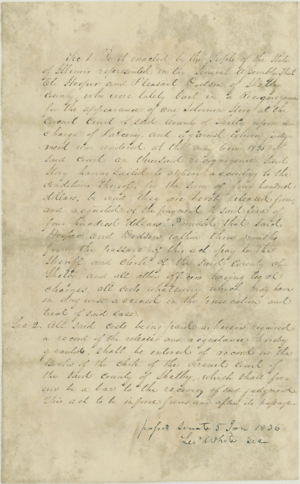 Sec. 1. Be it enacted by the People of the State
of Illinois represented in the General Assembly, That
and Pleasant of Shelby
County, who were lately bail in a Recognizance
for the appearance of one Solomon at the
Circuit Court of said county of Shelby upon a
charge of Larceny, and against whom judg-
ment was rendered at the May term 1835 of
said court on their said recognizance, said
having failed to appear according to the
conditions thereof, in the sum of four hundred
dollars, be and they are hereby released from
and acquitted of the payment of said fine of
four hundred dollars. Provided, that said
and within three months
from the passage of this act pay to the
Sheriff and Clerk of the said County of
Shelby and all other officers having legal
charges, all costs whatsoever which may have
in due wise accrued in the prosecution and
trial of said case.
Sec 2. All said costs being paid as herein required
a record of the release and acquittance hereby
granted shall be entered of record on the
Books of the clerk of the circuit court of
the said county of Shelby, which shall for-
ever be a bar to the recovery of said judgment
This act to be in force from and after its passage.
passed Senate 5 Jan 1836
Leod White Sec